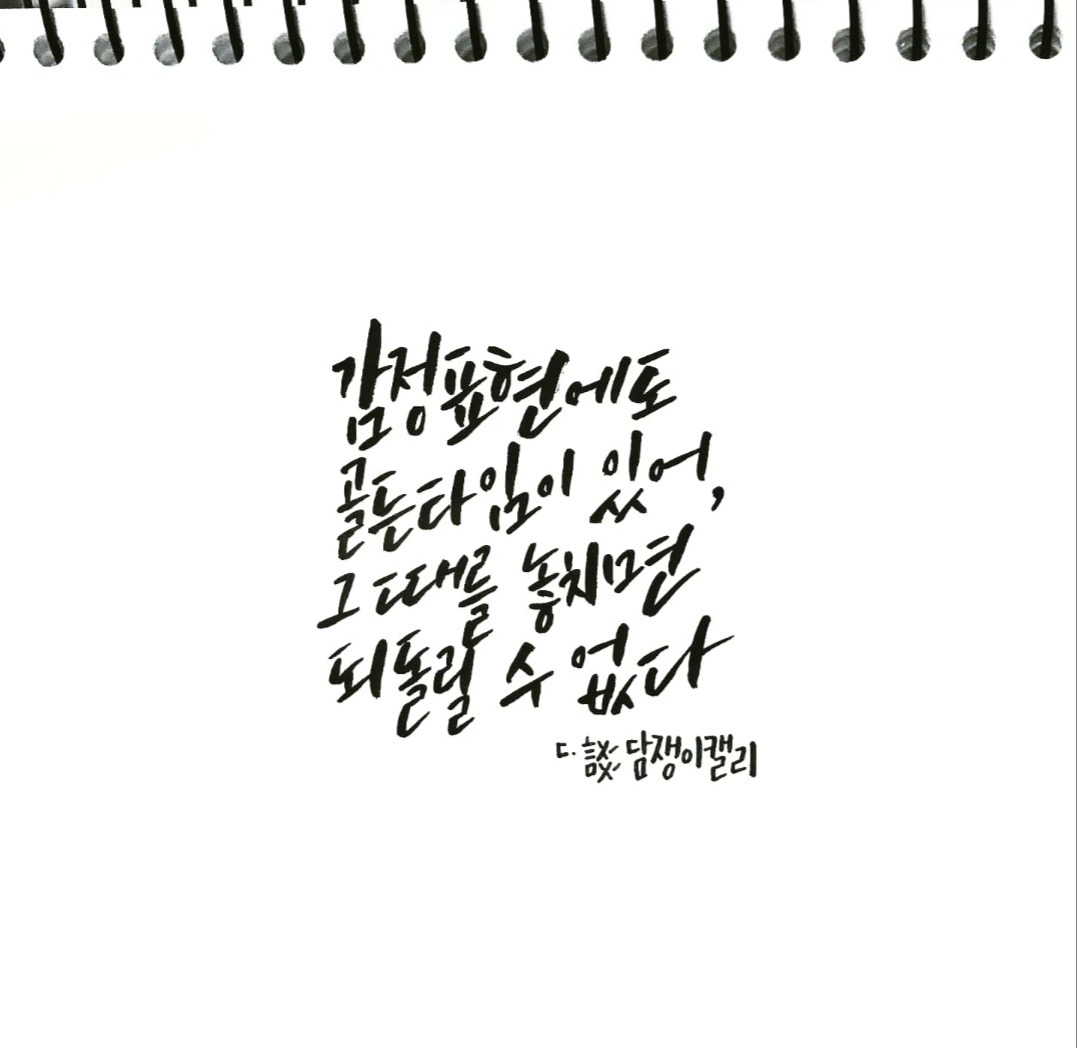 감정표현에도
골든타임이 있어,
그 때를 놓치면
되돌릴 수 없다
ㄷ. 談 담쟁이캘리